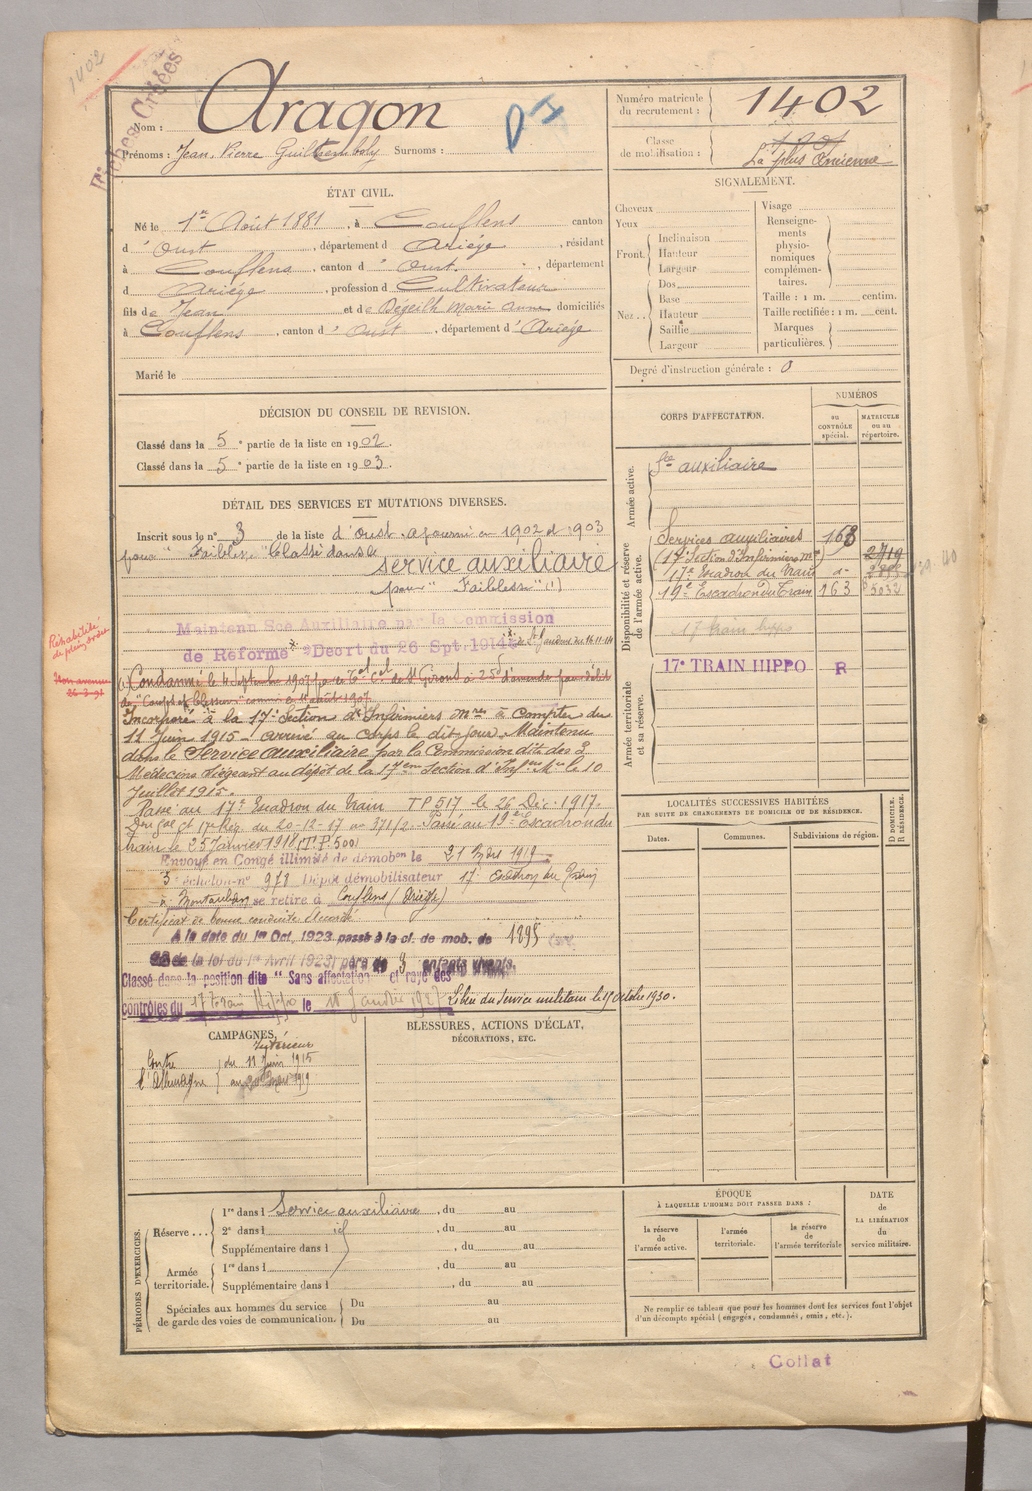 1402
Fiches Créées
Nom : Aragon
P I
Prénoms : Jean, Pierre Guilhemboly Surnoms :
Numéro matricule du recrutement : 1402
Classe de mobilisation : 1901
La plus ancienne
ÉTAT CIVIL.
Né le 1er Août 1881, à Couflens canton
d'Oust, département d Ariège, résidant
à Couflens, canton d'Oust, département
d Ariège, profession d Cultivateur
fils de Jean et de Degeilh Marie Anne domiciliés
à Couflens, canton d'Oust, département d'Ariège
Marié le
SIGNALEMENT.
Cheveux
Yeux
Front. Inclinaison
Hauteur
Largeur
Nez.. Dos
Base
Hauteur
Saillie
Largeur
Visage
Renseignements physionomiques complémentaires.
Taille : 1 m. centim.
Taille rectifiée : 1 m. cent.
Marques particulières.
Degré d'instruction générale : 0
DÉCISION DU CONSEIL DE REVISION.
Classé dans la 5e partie de la liste en 1902.
Classé dans la 5e partie de la liste en 1903.
CORPS D'AFFECTATION.
NUMÉROS
au CONTRÔLE spécial.
MATRICULE ou au répertoire.
Armée active.
Sce auxiliaire
Disponibilité et réserve de l'armée active.
Services auxiliaires 163
(17e Section d'Infirmiers Mres 2719
17e Escadron du Train d-
19e Escadron du Train 163 5032
17 train hippo
Armée territoriale et sa réserve.
17e TRAIN HIPPO R
DÉTAIL DES SERVICES ET MUTATIONS DIVERSES.
Inscrit sous le no 3 de la liste d'Oust. ajourné en 1902 et 1903
pour "Faiblesse" Classé dans le
service auxiliaire
pour "Faiblesse" (1)
Maintenu Sce Auxiliaire par la Commission
de Réforme Décrt du 26 Spt. 1914 de St Gaudens du 16.11.14
Réhabilité de plein droit
Non avenue
(1) Condamné le 4 Septembre 1907 par le Tal Cel de St Girons à 25f d'amende pour délit
de "Coups et blessures" commis le 11 août 1907
Incorporé à la 17e Section d'Infirmiers Mres à compter du
11 Juin 1915 - arrivé au corps le dit jour. Maintenu
dans le Service auxiliaire par la Commission dite des 3
Médecins siégeant au dépôt de la 17ème Section d'Infirs Mres le 10
Juillet 1915.
Passé au 17e Escadron du Train TP 517 le 26 Déc. 1917.
17e Rég. du 20-12-17 no 371/2. Passé au 19e Escadron du
train le 25 Janvier 1918 (T.P. 500)
Envoyé en Congé illimité de démobon le 21 Mars 1919
5e échelon no 978 Dépôt démobilisateur 17e Escadron du Train
à Montauban se retire à Couflens (Ariège)
Certificat de bonne conduite Accordé
A la date du 1er Oct. 1923 passé à la cl. de mob. de 1895
de la loi du 1er Avril 1923) père de 3 enfants vivants.
Classé dans la position dite "Sans affectation" et rayé des
contrôles du 17 train Hippo le 15 Janvier 1927 Libéré du service militaire le 15 octobre 1930.
LOCALITÉS SUCCESSIVES HABITÉES
PAR SUITE DE CHANGEMENTS DE DOMICILE OU DE RÉSIDENCE.
Dates.
Communes.
Subdivisions de région.
D DOMICILE. R RÉSIDENCE.
CAMPAGNES.
Intérieur
Contre l'Allemagne du 11 Juin 1915
au 20 Mars 1919
BLESSURES, ACTIONS D'ÉCLAT,
DÉCORATIONS, ETC.
PÉRIODES D'EXERCICES.
Réserve... 1re dans l Service auxiliaire, du au
2e dans l id, du au
Supplémentaire dans l , du au
Armée territoriale. 1re dans l , du au
Supplémentaire dans l , du au
Spéciales aux hommes du service de garde des voies de communication. Du au
Du au
ÉPOQUE
À LAQUELLE L'HOMME DOIT PASSER DANS :
la réserve de l'armée active.
l'armée territoriale.
la réserve de l'armée territoriale
DATE
de
LA LIBÉRATION
du
service militaire.
Ne remplir ce tableau que pour les hommes dont les services font l'objet
d'un décompte spécial (engagés, condamnés, omis, etc.).
Collat